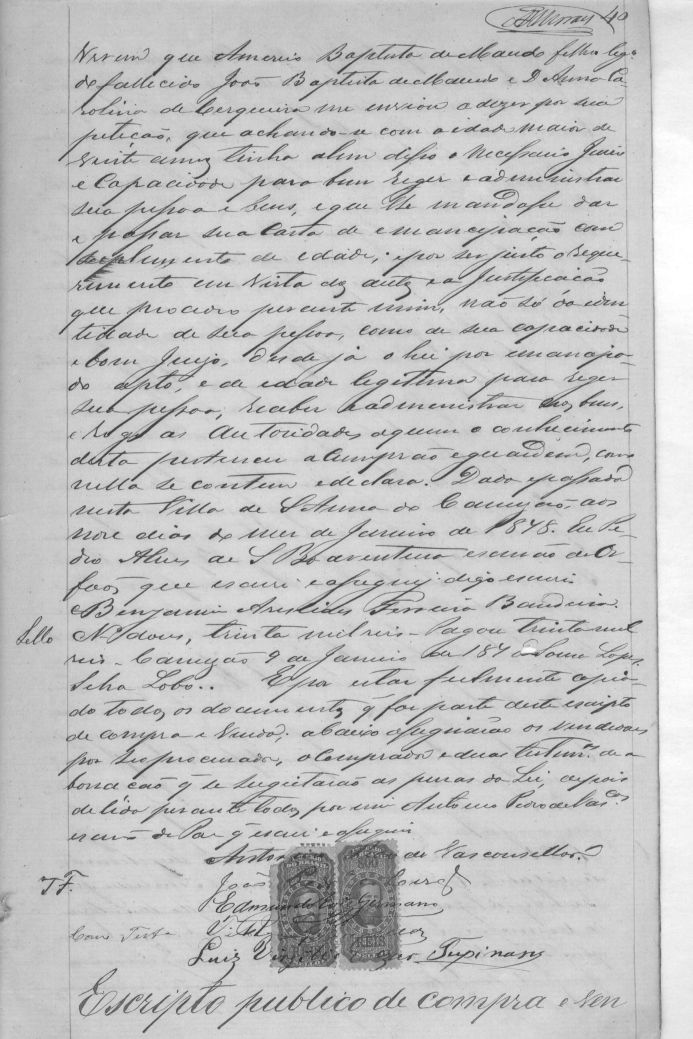 40
virem que Americo Baptista de Macedo filho leg.º
do fallecido João Baptista de Macedo e D. Anna Ca-
rolina de Cerqueira me enviou a dizer por sua
petição, que achando-se com a idade maior de
vinte annos tinha alem disso o necessario Juizo
e Capacidade para bem reger e administrar
sua pessoa e bens, e que lhe mandasse dar
e passar sua Carta de emancipação com
supplemento de edade; e por ser justo o reque-
rimento em vista dos autos e a Justificação
que procedeo perante mim, não só da iden
tidade de sua pessoa, como de sua capacidade
e bom Juizo, desde já o hei por emancipa-
do apto, e de edade legitima para reger
sua pessoa, receber e administrar seos bens,
e rogo as Autoridades a quem o conhecimento
desta pertencer a cumprão e guardem, como
nella se contem e declara. Dada e passada
nesta Villa de S. Anna do Camizão, aos
nove dias do mez de Janeiro de 1848. Eu Pe-
dro Alves de S. Boaventura escrivão de Or-
fãos que escrevi e assignei digo escrevi.
Benjamin Aristides Ferreira Bandeira.
Sello Nº dous, trinta mil reis - Pagou trinta mil
reis - Camizão 9 de Janeiro de 184 Lopes
Silva Lobo.. E por estar fielmente copia-
do todos os documentos q faz parte deste escripto
de compra e venda, abaixo assignarão os vendedores
por seo procurador, o Comprador e duas testem.as de a
bonação q se sugeitarão as penas da Lei, depois
de lido perante todos, por mim Antonio Pedro de Vas.cos
escrivão de Paz q escrevi e assignei
Anto de Vasconsellos.
TF. João
Edmundo Germano
Como Testa
Luiz Virgilio Tupinam
Escripto publico de compra e ven